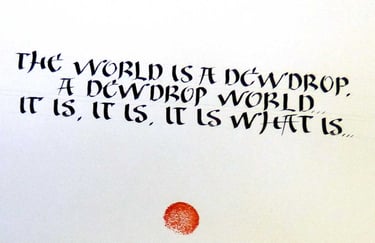 THE WORLD IS A DEWDROP.
A DEWDROP WORLD...
IT IS, IT IS, IT IS WHAT IS...